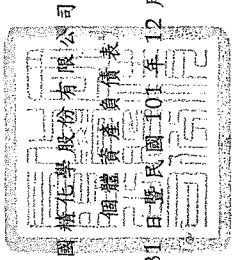 國精化學股份有限公司
個體資產負債表
31日暨民國101年12月